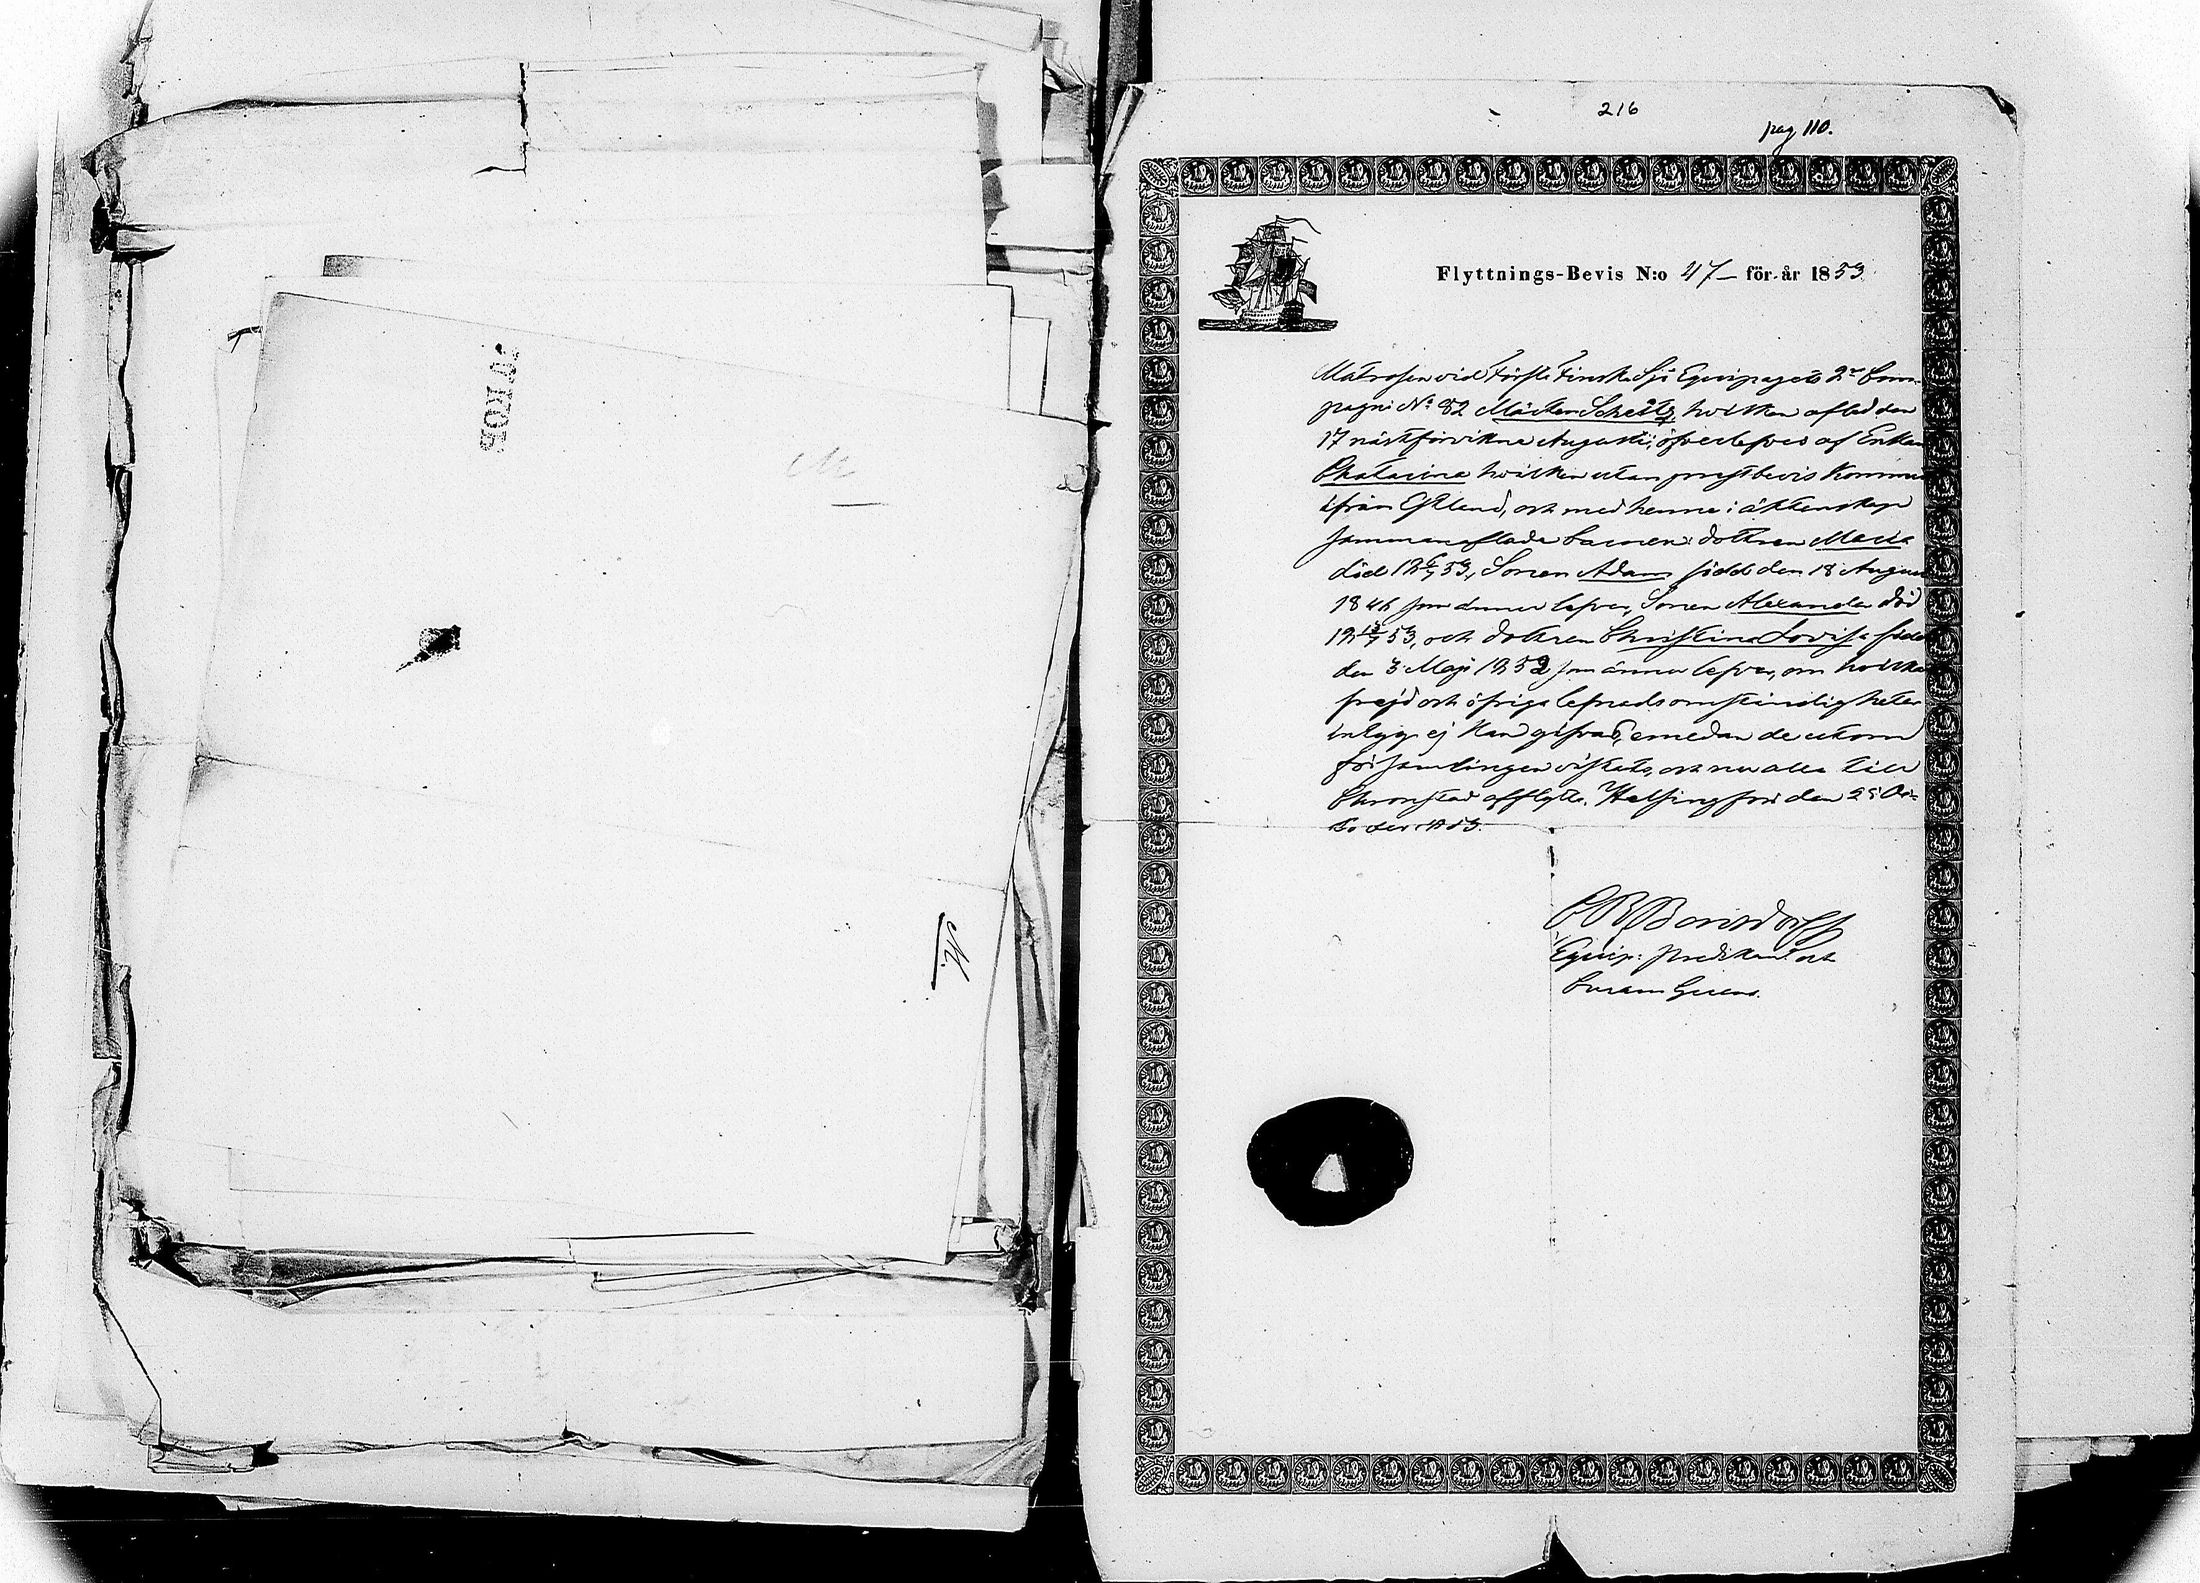 216
pag 110.
Flyttnings-Bevis N:o 47 för år 1853
Matrosen vid Första Finska Sjö Equipagets 2:a Com-
pagni N:o 82 Mårten Scheitz, hvilken afled den
17 nästförvikne Augusti, öfverlefves af Enkan
Chatarina hvilken utan prestbevis kommit
ifrån Estland, och med henne i äktenskap
sammanaflade barnen: dottren Maria
död 18 6/7 53, Sonen Adam född den 18 Augusti
1846 som ännu lefver, Sonen Alexander död
18 13/7 53, och dottren Christina Lovisa född
den 3 Maji 1852 som ännu lefver, om hvilkas
frejd och öfriga lefnadsomständigheter
intyg ej kan gifvas, emedan de utom
församlingen vistats, och nu alla till
Chronstad afflytta. Helsingfors den 25 Oc-
tober 1853.
Bonsdorff
Equip: Predikant och
M.
M